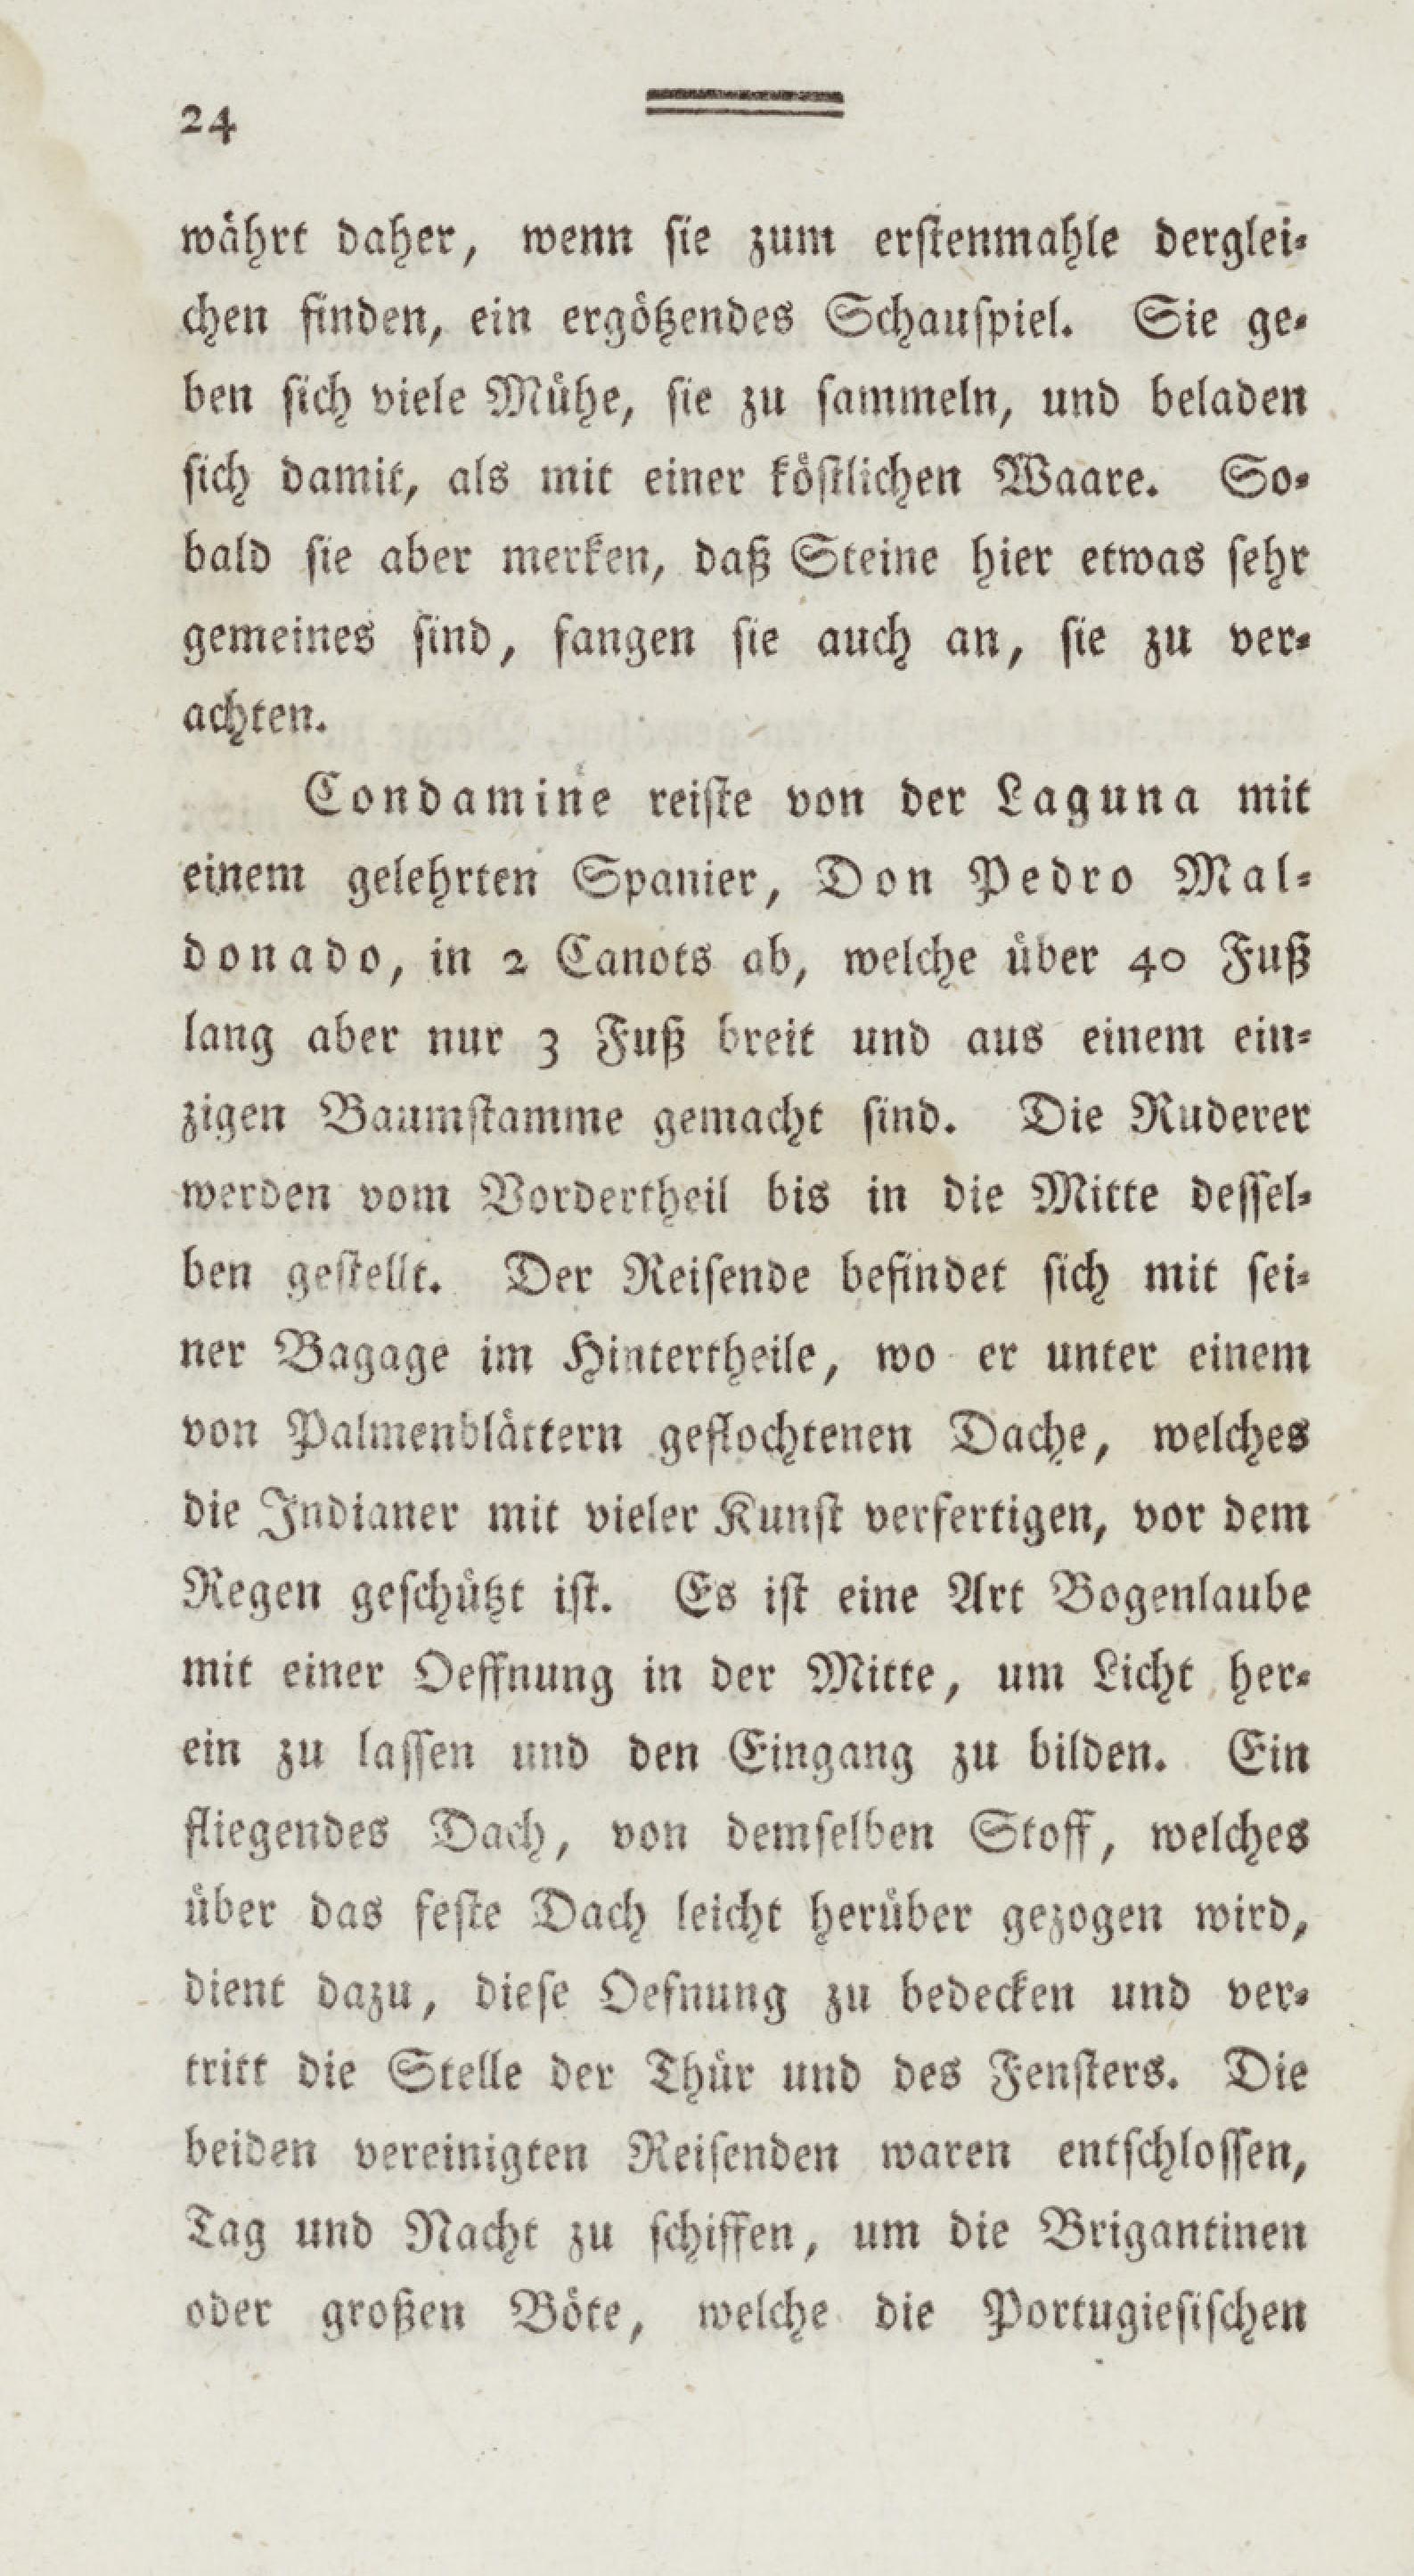 24
währt daher, wenn sie zum erstenmahle derglei-
chen finden, ein ergötzendes Schauspiel. Sie ge-
ben sich viele Mühe, sie zu sammeln, und beladen
sich damit, als mit einer köstlichen Waare. So-
bald sie aber merken, daß Steine hier etwas sehr
gemeines sind, fangen sie auch an, sie zu ver-
achten.
Condamine reiste von der Laguna mit
einem gelehrten Spanier, Don Pedro Mal-
donado, in 2 Canots ab, welche über 40 Fuß
lang aber nur 3 Fuß breit und aus einem ein-
zigen Baumstamme gemacht sind. Die Ruderer
werden vom Vordertheil bis in die Mitte dessel-
ben gestellt. Der Reisende befindet sich mit sei-
ner Bagage im Hintertheile, wo er unter einem
von Palmenblättern geflochtenen Dache, welches
die Indianer mit vieler Kunst verfertigen, vor dem
Regen geschützt ist. Es ist eine Art Bogenlaube
mit einer Oeffnung in der Mitte, um Licht her-
ein zu lassen und den Eingang zu bilden. Ein
fliegendes Dach, von demselben Stoff, welches
über das feste Dach leicht herüber gezogen wird,
dient dazu, diese Oefnung zu bedecken und ver-
tritt die Stelle der Thür und des Fensters. Die
beiden vereinigten Reisenden waren entschlossen,
Tag und Nacht zu schiffen, um die Brigantinen
oder großen Böte, welche die Portugiesischen